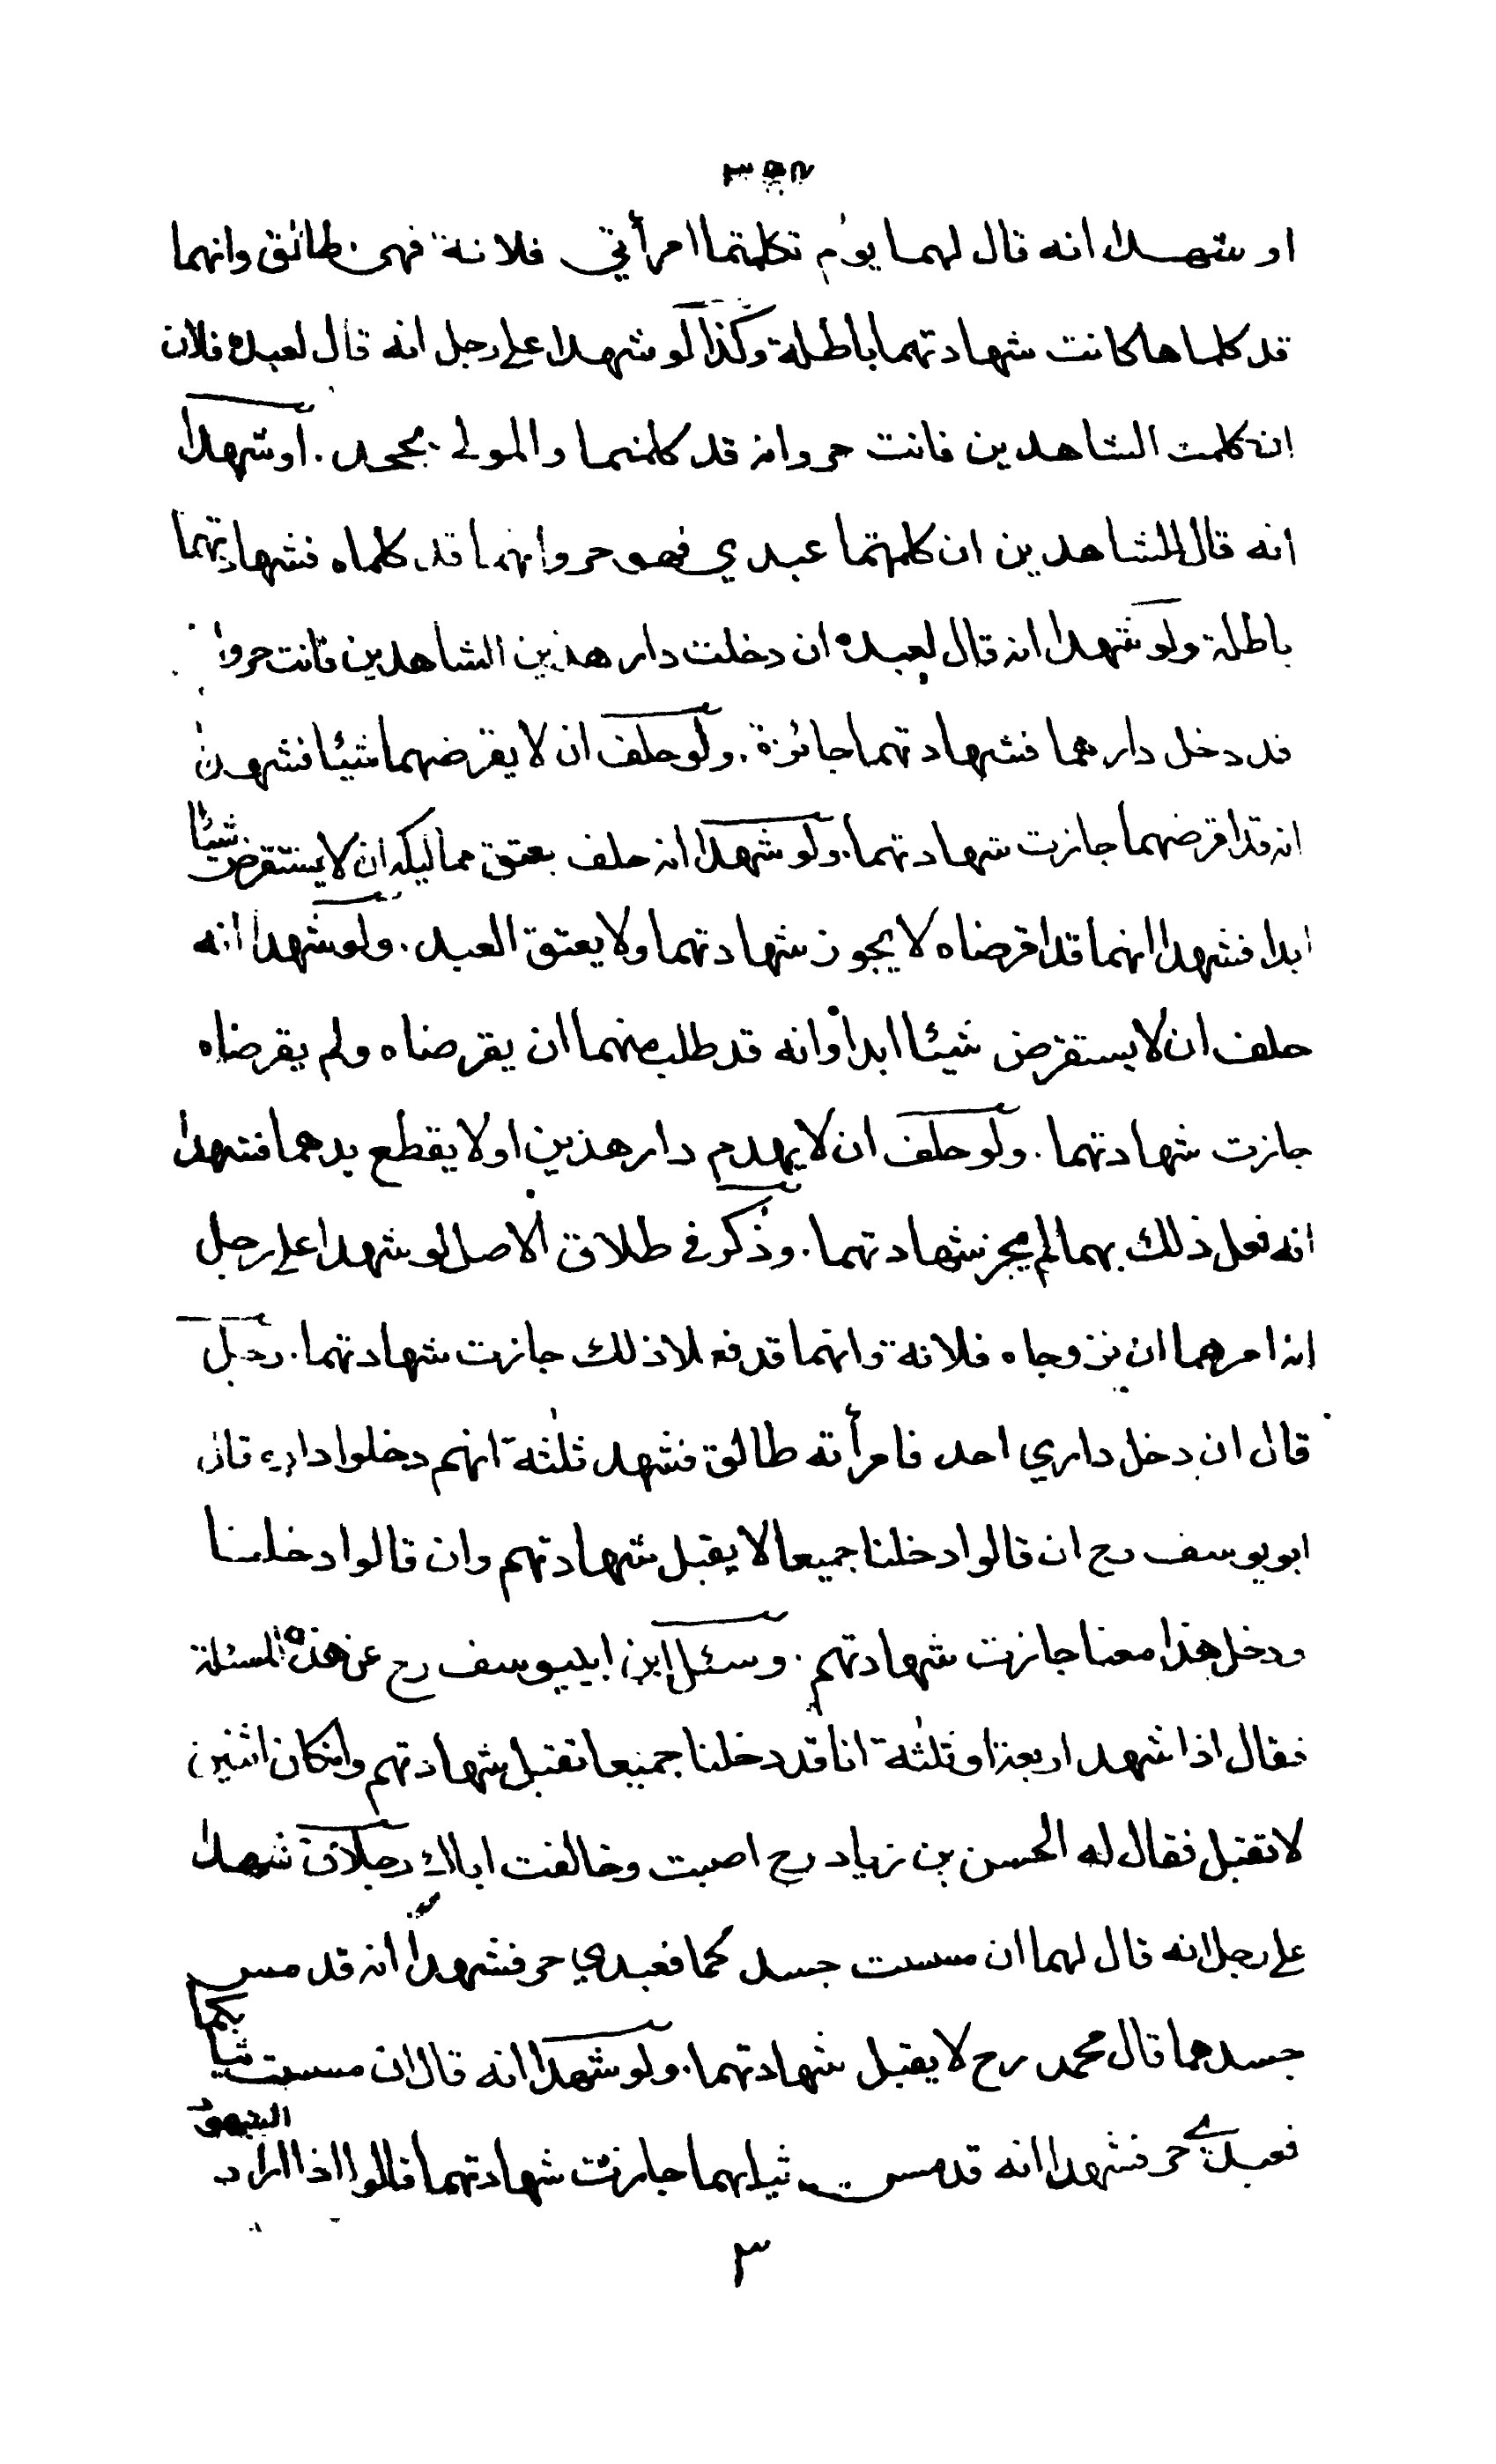 او شهدا انه قال لهما يوم تكلمتما امرأتي فلانة فهي طالق وانهما
قد كلماها كانت شهادتهما باطلة وكذا لو شهدا على رجل انه قال لعبده فلان
ان كلمت الشاهدين فانت حر وانه قد كلمهما والمولى يجحد . او شهدا
انه قال للشاهدين ان كلمتما عبدي فهو حر وانهما قد كلماه فشهادتهما
باطلة ولو شهدا انه قال لعبده ان دخلت دار هذين الشاهدين فانت حر وانه
قد دخل دارهما فشهادتهما جائزة . ولو حلف ان لا يقرضهما شيئا فشهدا
انه قد اقرضهما جازت شهادتهما . ولو شهدا انه حلف بعتق مماليكه ان لا يستقرض شيئا
ابدا فشهدا انهما قد اقرضاه لا يجوز شهادتهما ولا يعتق العبد . ولو شهدا انه
حلف ان لا يستقرض شيئا ابدا وانه قد طلب منهما ان يقرضاه ولم يقرضاه
جازت شهادتهما . ولو حلف ان لا يهدم دار هذين او لا يقطع يدهما فشهدا
انه فعل ذلك بهما لم يجز شهادتهما . وذكر في طلاق الاصل لو شهدا على رجل
انه امرهما ان يزوجاه فلانة وانهما قد فعلا ذلك جازت شهادتهما . رجل
قال ان دخل داري احد فامرأته طالق فشهد ثلثة انهم دخلوا داره قال
ابو يوسف رح ان قالوا دخلنا جميعا لا يقبل شهادتهم وان قالوا دخلنا
ودخل هذا معنا جازت شهادتهم . وسئل ابن ابي يوسف رح عن هذه المسئلة
فقال اذا شهد اربعة او ثلثة انا قد دخلنا جميعا تقبل شهادتهم وان كان اثنين
لا تقبل فقال له الحسن بن زياد رح اصبت وخالفت اباك رجلان شهدا
على رجل انه قال لهما ان مسست جسدكما فعبدي حر فشهدا انه قد مس
جسدهما قال محمد رح لا يقبل شهادتهما . ولو شهدا انه قال ان مسست ثيابكما
فعبدي حر فشهدا انه قد مس ثيابهما جازت شهادتهما قالوا اذا اراد الشهود
٣